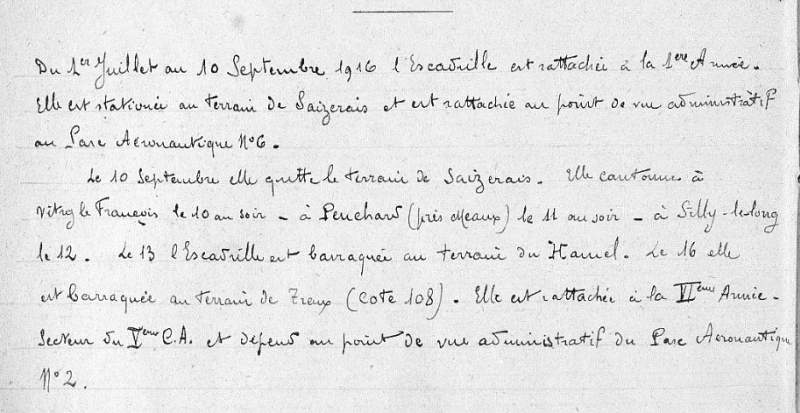 Du 1er Juillet au 10 Septembre 1916 l'Escadrille est rattachée à la 1ere Armée.
Elle est stationnée au terrain de Saizerais et est rattachée au point de vue administratif
au Parc Aéronautique N°6.
Le 10 Septembre elle quitte le terrain de Saizerais. Elle cantonne à
Vitry le François le 10 au soir - à Penchard (près Meaux) le 11 au soir - à Silly-le-long
le 12. Le 13 l'Escadrille est barraquée au terrain du Hamel. Le 16 elle
est barraquée au terrain de Treux (Cote 108). Elle est rattachée à la VIeme Armée.
Secteur du Veme C.A. et dépend au point de vue administratif du Parc Aéronautique
N°2.